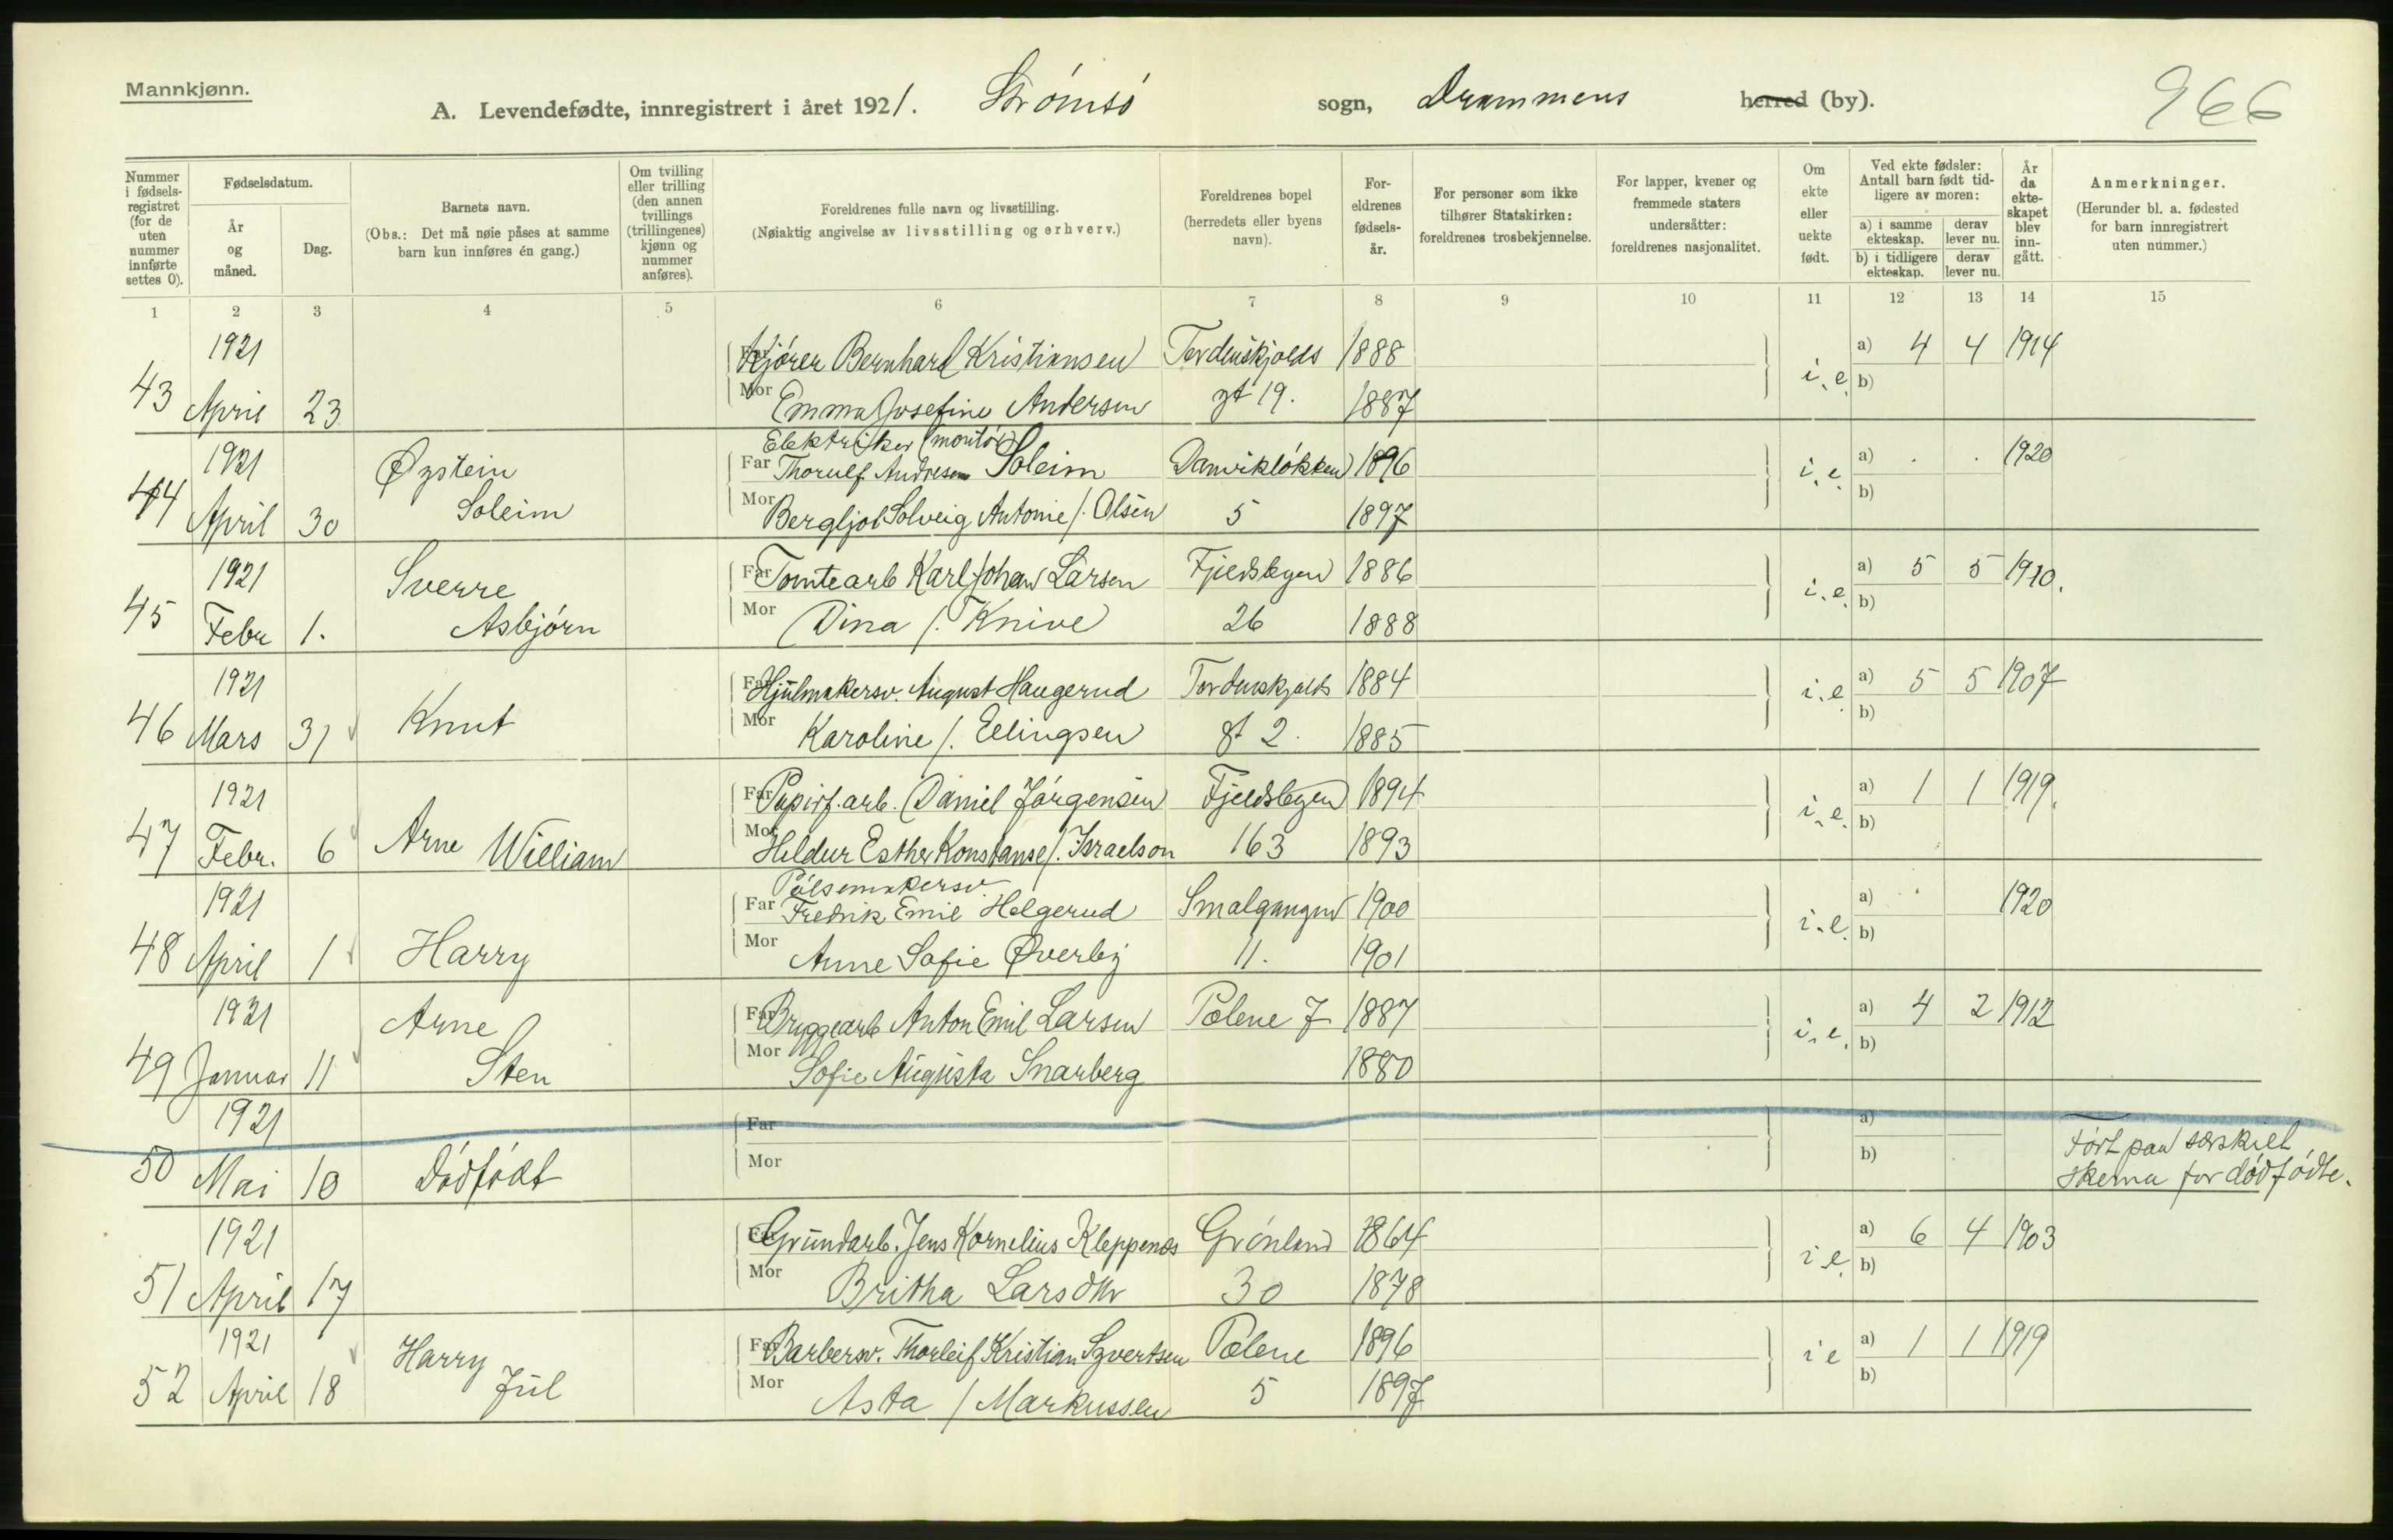 Mannkjønn.
A. Levendefødte, innregistrert i året 1921. Strømsø sogn, Drammens herred (by). 966
Nummer i fødselsregistret (for de uten nummer innførte settes 0).
Fødselsdatum.
År og måned.
Dag.
Barnets navn.
(Obs.: Det må nøie påses at samme barn kun innføres én gang.)
Om tvilling eller trilling (den annen tvillings (trillingenes) kjønn og nummer anføres).
Foreldrenes fulle navn og livsstilling.
(Nøiaktig angivelse av livsstilling og erhverv.)
Foreldrenes bopel (herredets eller byens navn).
Foreldrenes fødselsår.
For personer som ikke tilhører Statskirken: foreldrenes trosbekjennelse.
For lapper, kvener og fremmede staters undersåtter: foreldrenes nasjonalitet.
Om ekte eller uekte født.
Ved ekte fødsler: Antall barn født tidligere av moren:
a) i samme ekteskap. derav lever nu.
b) i tidligere ekteskap. derav lever nu.
År da ekteskapet blev inngått.
Anmerkninger.
(Herunder bl. a. fødested for barn innregistrert uten nummer.)
1 2 3 4 5 6 7 8 9 10 11 12 13 14 15
1921 Far Kjører Bernhard Kristiansen Tordenskjolds 1888 a) 4 4 1914
43 April 23 Mor Emma Josefine Andersen gt 19. 1887 i.e. b)
Elektriker (montør)
1921 Øystein Far Thorulf Andresen Soleim Danvikløkken 1896 i.e. a) . . 1920
44 April 30 Soleim Mor Bergljot Solveig Antonie f. Olsen 5 1897 b)
1921 Sverre Far Tomtearb Karl Johan Larsen Fjeldsbyen 1886 a) 5 5 1910.
45 Febr 1. Asbjørn Mor Dina f. Knive 26 1888 i.e. b)
1921 Far Hjulmakersv. August Haugerud Tordenskjolds 1884 a) 5 5 1907
46 Mars 31 Knut Mor Karoline f. Ellingsen gt 2. 1885 i.e b)
1921 Far Papirf.arb. Daniel Jørgensen Fjeldsbyen 1894 a) 1 1 1919.
47 Febr. 6 Arne William Mor Heldur Esther Konstanse f. Israelson 163 1893 i.e. b)
Pølsemakersv.
1921 Far Fredrik Emil Helgerud Smalgangen 1900 a) . 1920
48 April 1 Harry Mor Anne Sofie Øverby 11. 1901 i.e. b)
1921 Arne Far Bryggearb Anton Emil Larsen Pælene 7 1887 a) 4 2 1912
49 Januar 11 Sten Mor Sofie Augusta Snarberg 1880 i.e. b)
1921 Far a) Ført paa særskilt
50 Mai 10 Dødfødt Mor b) skema for dødfødte.
1921 Far Grundarb. Jens Kornelius Kleppenes Grønland 1864 a) 6 4 1903
51 April 17 Mor Britha Larsdtr 30 1878 i.e. b)
1921 Harry Far Barbersv. Thorleif Kristian Syvertsen Pælene 1896 i e a) 1 1 1919
52 April 18 Jul Mor Asta f Markussen 5 1897 b)